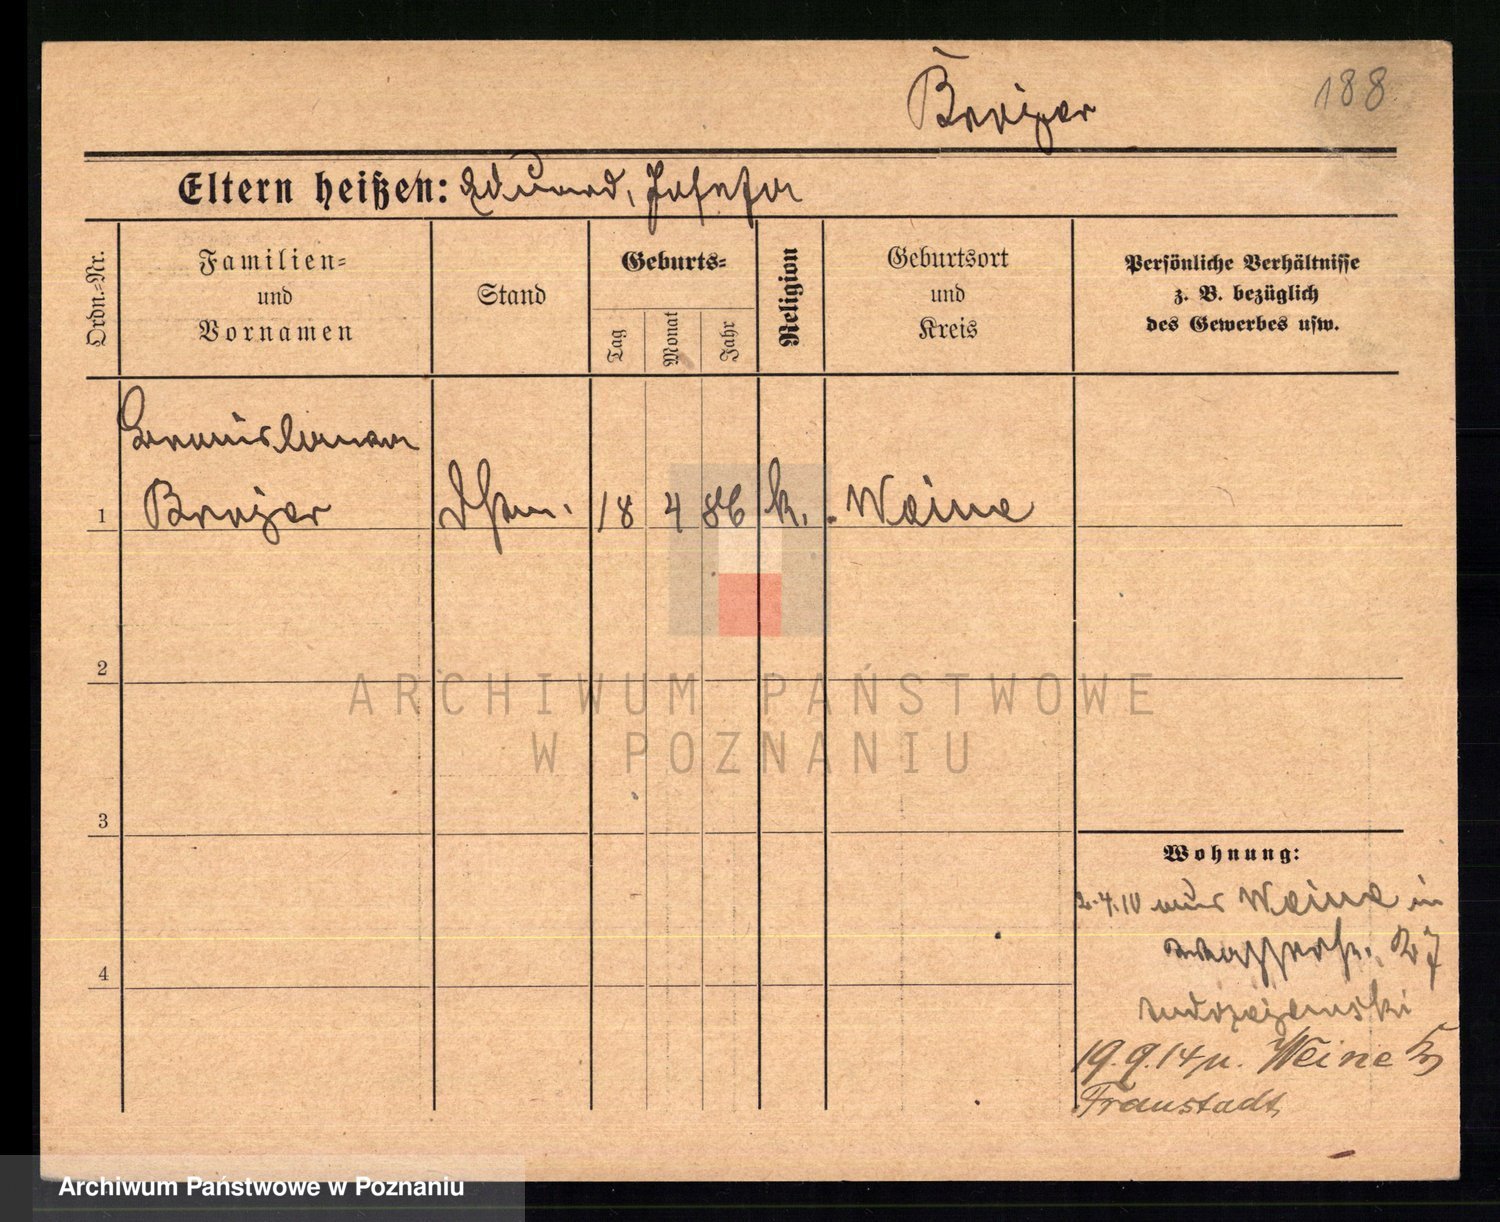 Brojer
188
Eltern heißen: Eduard, Josefa
Ordn.=Nr.
Familien=
und
Vornamen
Stand
Geburts=
Tag
Monat
Jahr
Religion
Geburtsort
und
Kreis
Persönliche Verhältnisse
z. B. bezüglich
des Gewerbes usw.
Bronislawa
1 Brojer 18 4 86 k. Weine
2
ARCHIWUM PAŃSTWOWE
W POZNANIU
3
Wohnung:
2.4.10 aus Weine in
27
19.9.14 n. Weine Krs
Fraustadt
4
Archiwum Państwowe w Poznaniu